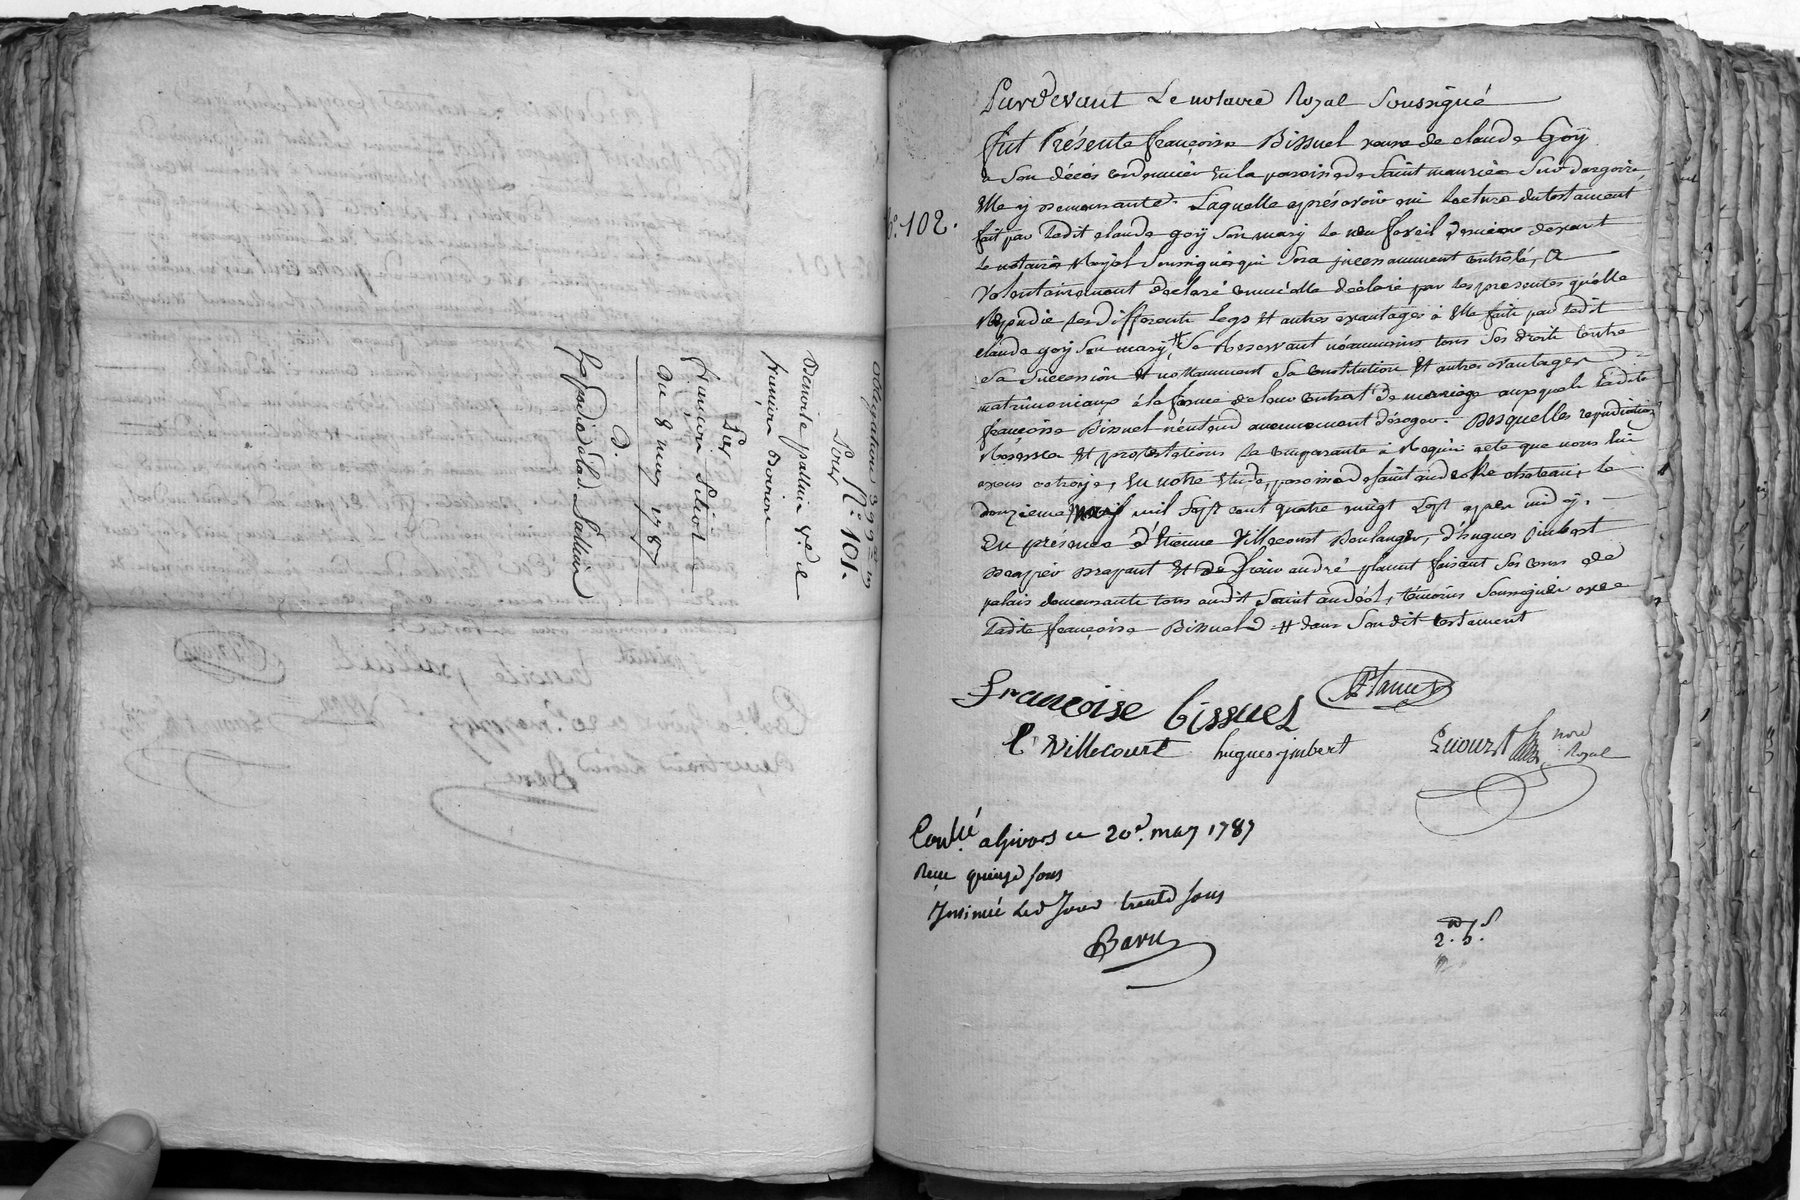 obligation
Pour
N.° 101.
Benoite palluis v.e de
Par
du 8 may 1787
N.° 102.
Pardevant Le notaire Royal Soussigné
fut Présente françoise Bissuel veuve de claude Goÿ
a Son décès en la paroisse de Saint maurice Sur dargoire,
Elle y demeurante. Laquelle après avoir oui Lecture du testament
fait par Ledit claude goÿ Son mary Le neuf avril dernier devant
Le notaire Royal Soussigné qui Sera incessamment controlé, a
volontairement declaré comme elle déclare par Les presentes qu'elle
Repudie Les differents Legs Et autres avantages à Elle faits par Ledit
claude goÿ Son mary, # Se Reservant néanmoins tous Ses droits Contre
Sa Succession Et nottamment Sa constitution Et autres avantages
matrimoniaux à la forme de leur contrat de mariage auxquels Ladite
françoise Bissuel n'entend aucunement déroger. Desquelles repudiation
Reserves Et protestations La comparante a Requis acte que nous lui
avons octroyé, En notre Etude, paroisse de Saint andeol Le chateau, Le
douzieme may mil Sept cent quatre vingt Sept après midy.
En présence d'Etienne Villecourt Boulanger, d'hugues imbert
drapier drapant Et de Sieur andré planut faisant Ses cours de
palais demeurants tous audit Saint andéol, témoins Soussignés avec
Ladite françoise Bissuel # dans Sondit testament
françoise bissuel
Planut
E Villecourt hugues imbert
not.re
Royal
Con.lé a Givors ce 20.e may 1787
Reçu quinze Sous
Insinué Led Jour trente Sous